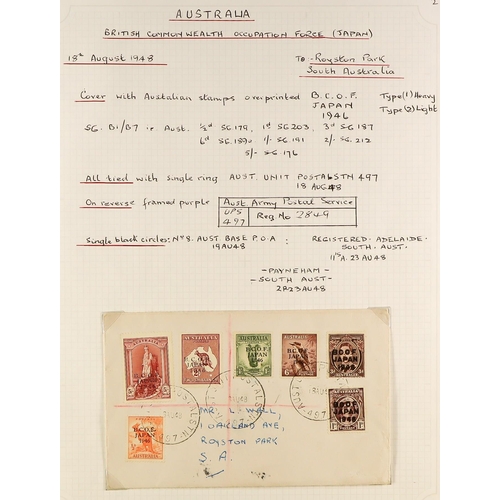 2
AUSTRALIA
BRITISH COMMONWEALTH OCCUPATION FORCE (JAPAN)
18th August 1948 TO:- Royston Park
South Australia
Cover with Australian stamps overprinted B.C.O.F. Type (1) Heavy
JAPAN Type (2) Light
1946
SG. B1/B7 is Aust. ½d SG 179, 1d SG 203, 3d SG 187
6d SG 189a 1/- SG 191 2/- SG. 212
5/- SG 176
All tied with single ring AUST. UNIT POSTAL STN 497
18 AUG 48
On reverse framed purple Aust. Army Postal Service
UPS 497 Reg. No 2849
Single black circles: No 8. AUST. BASE P.O.A : REGISTERED. ADELAIDE.
19 AU 48 SOUTH. AUST.
11 A. 23 AU 48
- PAYNEHAM -
- SOUTH AUST -
28.23 AU 48
AUSTRALIA
B.C.O.F.
JAPAN
1946
B.C.O.F.
JAPAN
1946
B.C.O.F.
JAPAN
1946
B.C.O.F.
JAPAN
1946
B.C.O.F.
JAPAN
1946
497
MR. L. WALL,
1 OAKLAND AVE,
ROYSTON PARK
S. A.